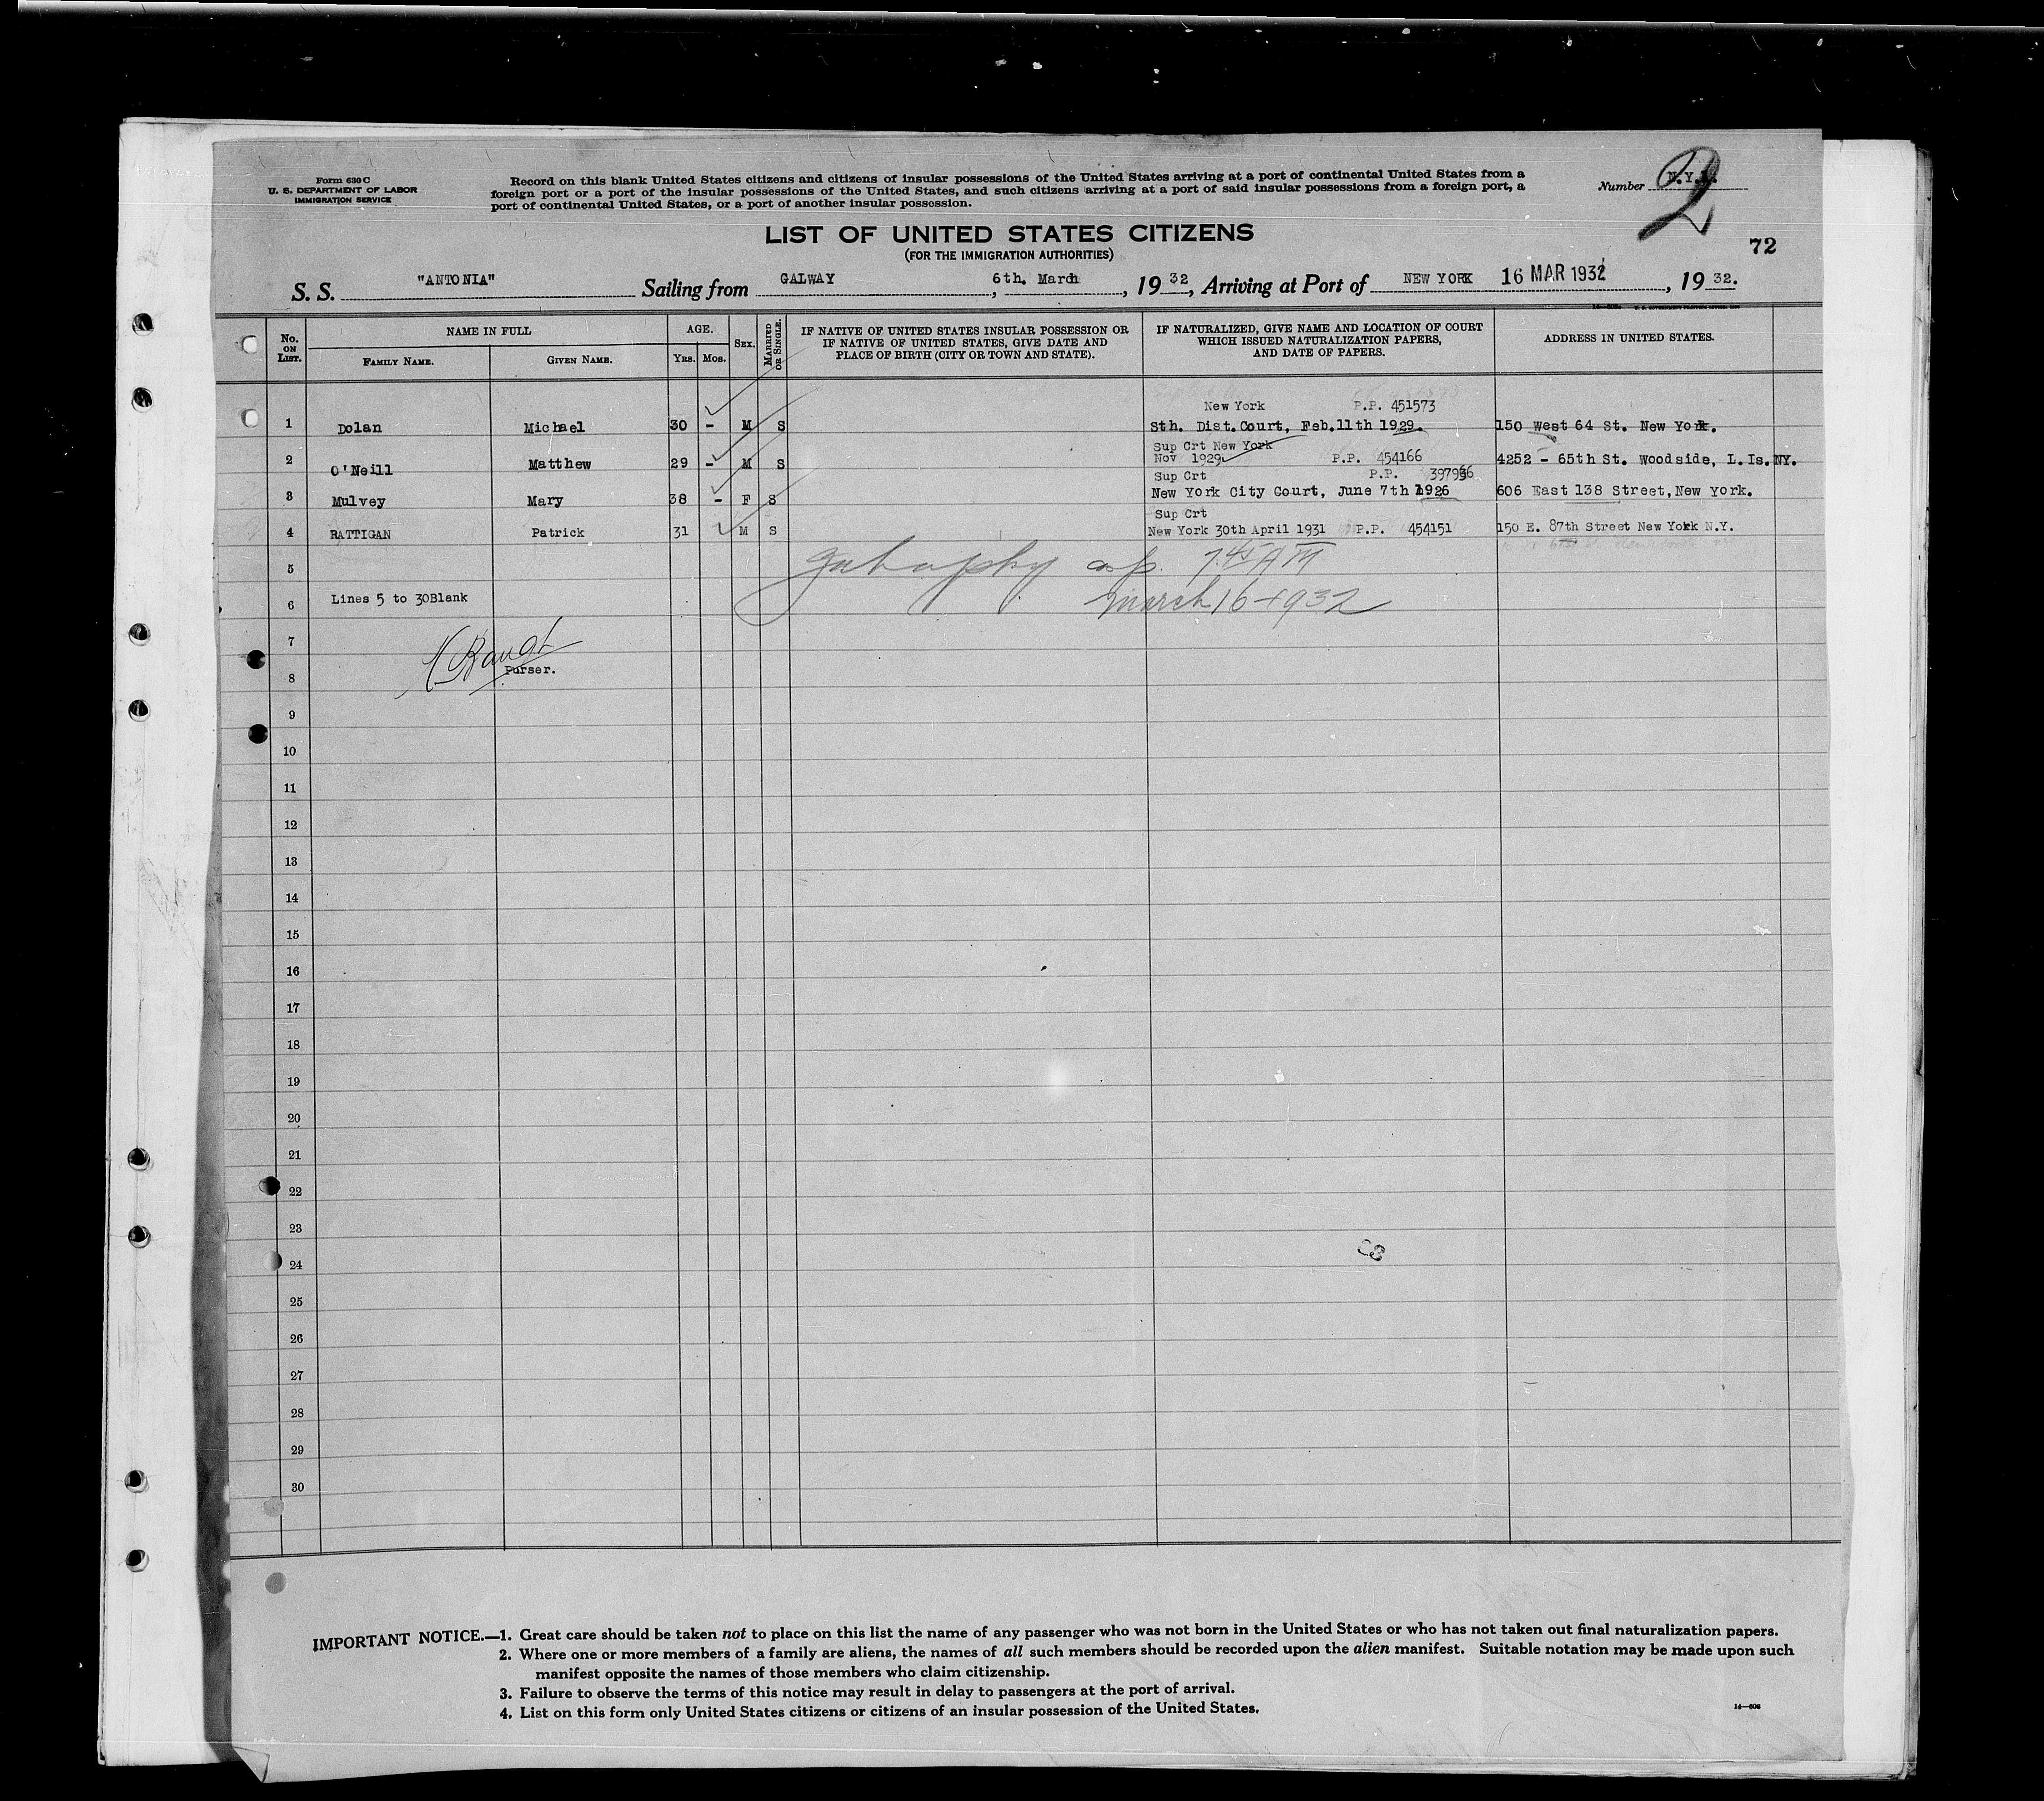 Form 630 C
U. S. DEPARTMENT OF LABOR
IMMIGRATION SERVICE
Record on this blank United States citizens and citizens of insular possessions of the United States arriving at a port of continental United States from a
foreign port or a port of the insular possessions of the United States, and such citizens arriving at a port of said insular possessions from a foreign port, a
port of continental United States, or a port of another insular possession.
Number N.Y.
2
LIST OF UNITED STATES CITIZENS
(FOR THE IMMIGRATION AUTHORITIES)
72
S. S. "ANTONIA" Sailing from GALWAY, 6th. March, 1932, Arriving at Port of NEW YORK 16 MAR 1932, 1932.
No. ON LIST. NAME IN FULL FAMILY NAME. GIVEN NAME. AGE. YRS. MOS. SEX. MARRIED OR SINGLE. IF NATIVE OF UNITED STATES INSULAR POSSESSION OR IF NATIVE OF UNITED STATES, GIVE DATE AND PLACE OF BIRTH (CITY OR TOWN AND STATE). IF NATURALIZED, GIVE NAME AND LOCATION OF COURT WHICH ISSUED NATURALIZATION PAPERS, AND DATE OF PAPERS. ADDRESS IN UNITED STATES.
New York P.P. 451573
1 Dolan Michael 30 - M S Sth. Dist. Court, Feb. 11th 1929. 150 West 64 St. New York.
Sup Crt New York
2 O'Neill Matthew 29 - M S Nov 1929 P.P. 454166 4252 - 65th St. Woodside, L. Is. NY.
Sup Crt P.P.
3 Mulvey Mary 38 - F S New York City Court, June 7th 1926 606 East 138 Street, New York.
Sup Crt
4 RATTIGAN Patrick 31 M S New York 30th April 1931 P.P. 454151 150 E. 87th Street New York N.Y.
5 7.45 AM
6 Lines 5 to 30Blank March 16-1932
7
8 Purser.
9
10
11
12
13
14
15
16
17
18
19
20
21
22
23
24
25
26
27
28
29
30
IMPORTANT NOTICE.—1. Great care should be taken not to place on this list the name of any passenger who was not born in the United States or who has not taken out final naturalization papers.
2. Where one or more members of a family are aliens, the names of all such members should be recorded upon the alien manifest. Suitable notation may be made upon such
manifest opposite the names of those members who claim citizenship.
3. Failure to observe the terms of this notice may result in delay to passengers at the port of arrival.
4. List on this form only United States citizens or citizens of an insular possession of the United States.